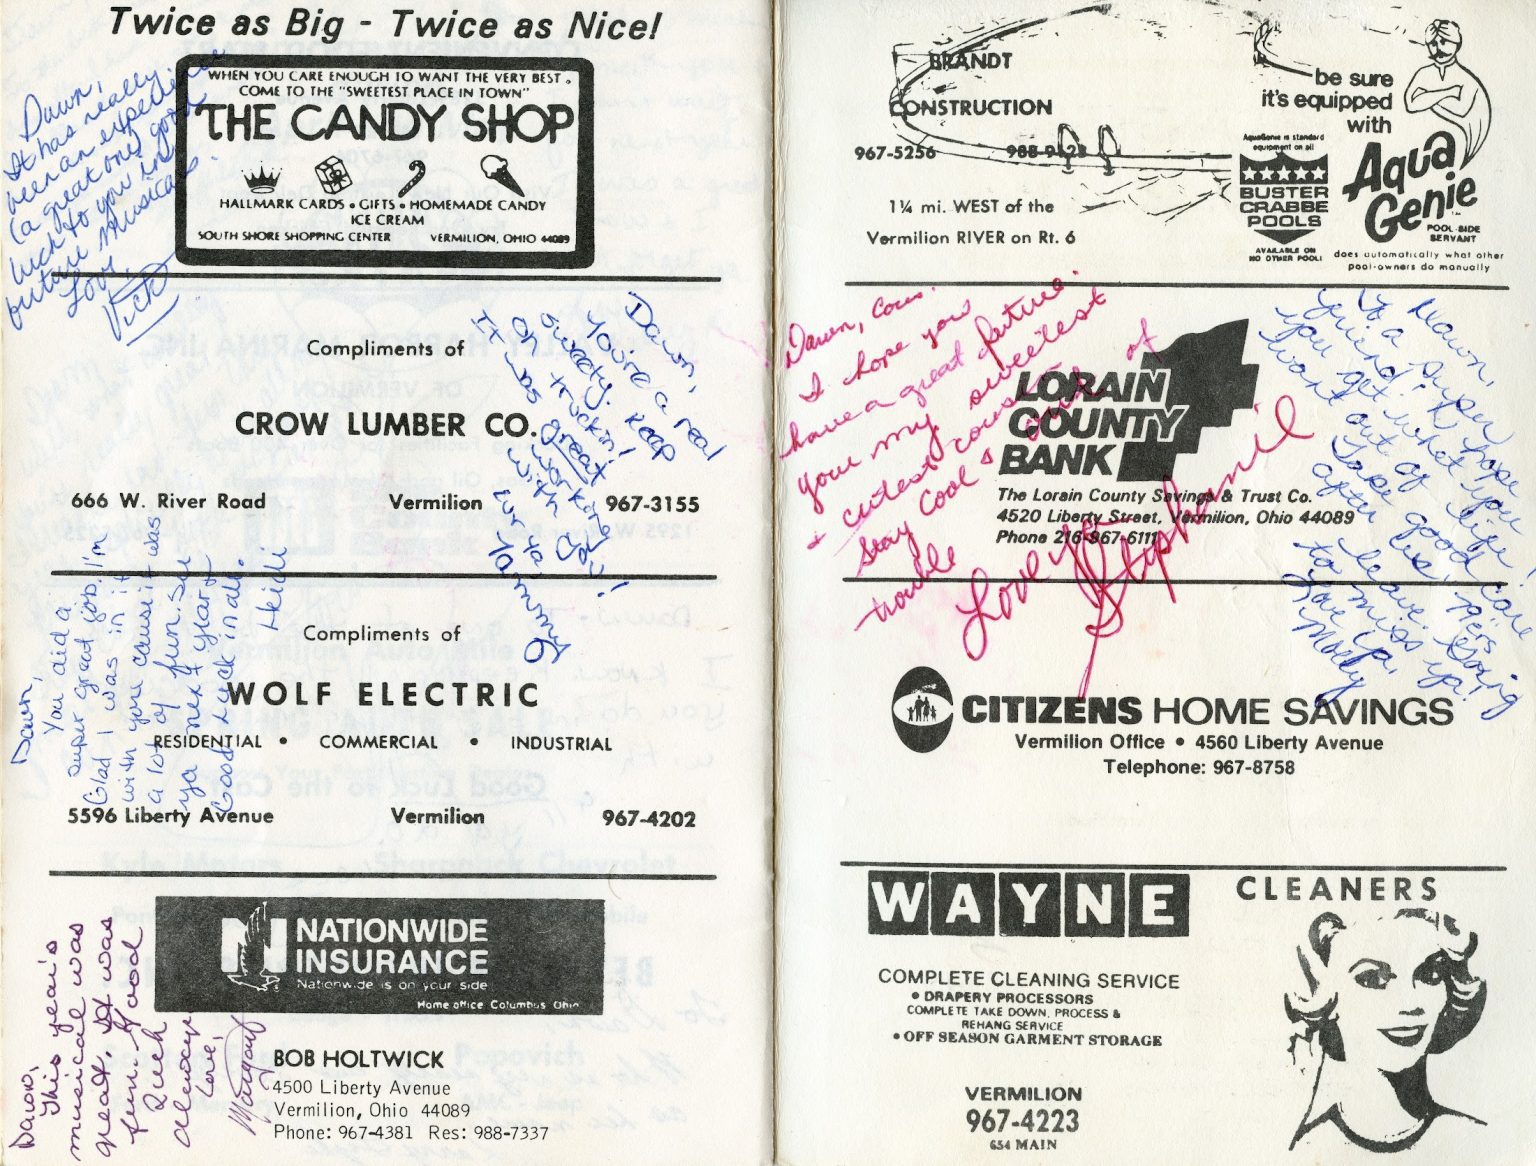 Twice as Big - Twice as Nice!
WHEN YOU CARE ENOUGH TO WANT THE VERY BEST.
COME TO THE "SWEETEST PLACE IN TOWN"
THE CANDY SHOP
HALLMARK CARDS • GIFTS • HOMEMADE CANDY
ICE CREAM
SOUTH SHORE SHOPPING CENTER VERMILION, OHIO 44089
Dawn,
It has really
been an experience
(a great one) good
luck to you in
future musicals.
Love,
Vick
Compliments of
CROW LUMBER CO.
666 W. River Road Vermilion 967-3155
Dawn,
You're a real
sweety. Keep
on truckin!
It was great
workone
with you!
Luv ta
Tammy
Compliments of
WOLF ELECTRIC
RESIDENTIAL • COMMERCIAL • INDUSTRIAL
5596 Liberty Avenue Vermilion 967-4202
Dawn,
You did a
super great job. I'm
Glad I was in it
with you cause it was
a lot of fun. See
ya next year!
Good luck in all.
Heidi
NATIONWIDE
INSURANCE
Nationwide is on your side
Home office Columbus Ohio
BOB HOLTWICK
4500 Liberty Avenue
Vermilion, Ohio 44089
Phone: 967-4381 Res: 988-7337
Dawn,
This year's
musical was
great. It was
fun. Good
Luck
always
Love,
Margary
BRANDT
CONSTRUCTION
967-5256 988-9423
1¼ mi. WEST of the
Vermilion RIVER on Rt. 6
be sure
it's equipped
with
AquaGenie is standard
equipment on all
BUSTER
CRABBE
POOLS
AVAILABLE ON
NO OTHER POOL!
Aqua
Genie
POOL-SIDE
SERVANT
does automatically what other
pool-owners do manually
Dawn, Cous.
I hope you
have a great future.
your my sweetest
+ cutest cousin
Stay Cool & out of
trouble
Love ya
Stephanie
LORAIN
COUNTY
BANK
The Lorain County Savings & Trust Co.
4520 Liberty Street, Vermilion, Ohio 44089
Phone 216-967-6111
Dawn,
To a super
friend. I hope
you get what you
want out of life!
Take good care
after us, pers
leave. Going
to miss ya!
Love ya,
Molly
CITIZENS HOME SAVINGS
Vermilion Office • 4560 Liberty Avenue
Telephone: 967-8758
WAYNE CLEANERS
COMPLETE CLEANING SERVICE
• DRAPERY PROCESSORS
COMPLETE TAKE DOWN, PROCESS &
REHANG SERVICE
• OFF SEASON GARMENT STORAGE
VERMILION
967-4223
654 MAIN